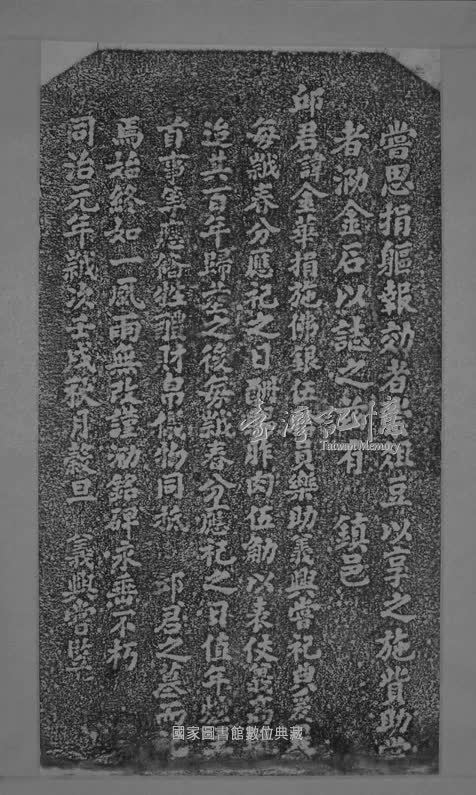 嘗思捐軀報効者俎豆以享之施貲助
者泐金石以誌之有鎮邑
邱君諱金華捐施佛銀伍員樂助義興嘗祀典
每歲春分應祀之日酬胙肉伍觔以表仗義
迨其百年歸之後每歲春分應祀之日值年
首事牲醴財帛儀物同抵邱君之墓而
焉始終如一風雨無改謹勒銘碑永垂不朽
同治元年歲次壬戌秋月穀旦 義興嘗
臺灣記憶
Taiwan Memory
國家圖書館數位典藏